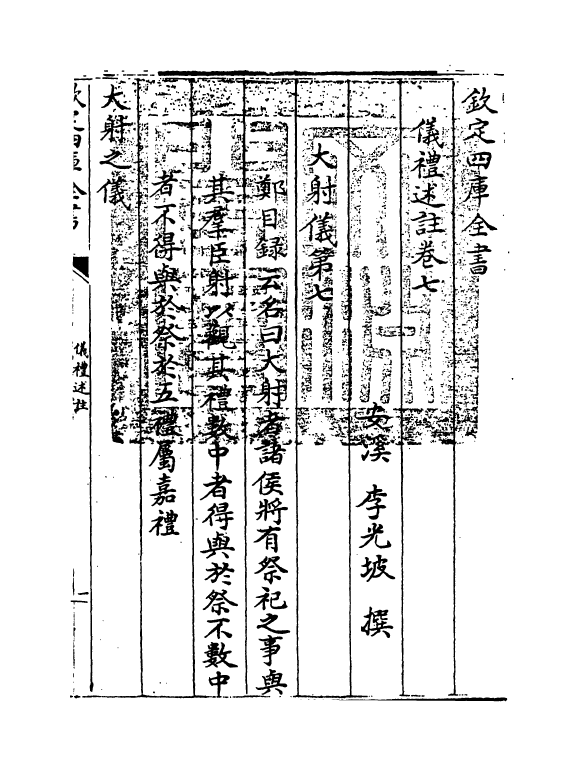 欽定四庫全書
儀禮述註卷七
安溪 李光坡 撰
大射儀第七
鄭目録云名曰大射者諸侯將有祭祀之事與
其羣臣射以觀其禮數中者得與於祭不數中
者不得與於祭於五禮屬嘉禮
大射之儀
欽定四庫全書
儀禮述註
一